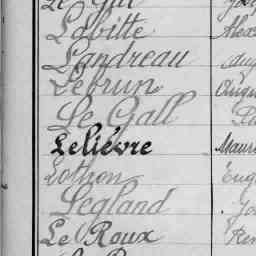 Le Gal
Labitte Alex
Landreau Aug
Lebrun Augu
Le Gall
Lelièvre Maur
Lothon Eug
Legland Jo
Le Roux Ren